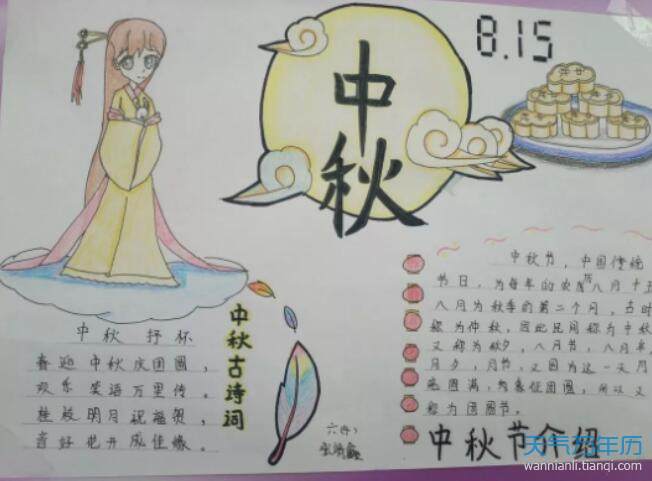 中秋
8.15
中秋 抒怀
喜迎中秋庆团圆，
欢乐笑语万里传。
桂殿明月祝福贺，
首好花开成佳缘。
中秋古诗词
中秋节，中国传统
节日，为每年的农历八月十五
八月为秋季的第二个月，古时
称为仲秋，因此民间称为中秋
又称为秋夕，八月节，八月半
月夕，月节，又因为这一天月
亮圆满，象征团圆，所以又
称为团圆节。
中秋节介绍
天气万年历
wannianli.tianqi.com